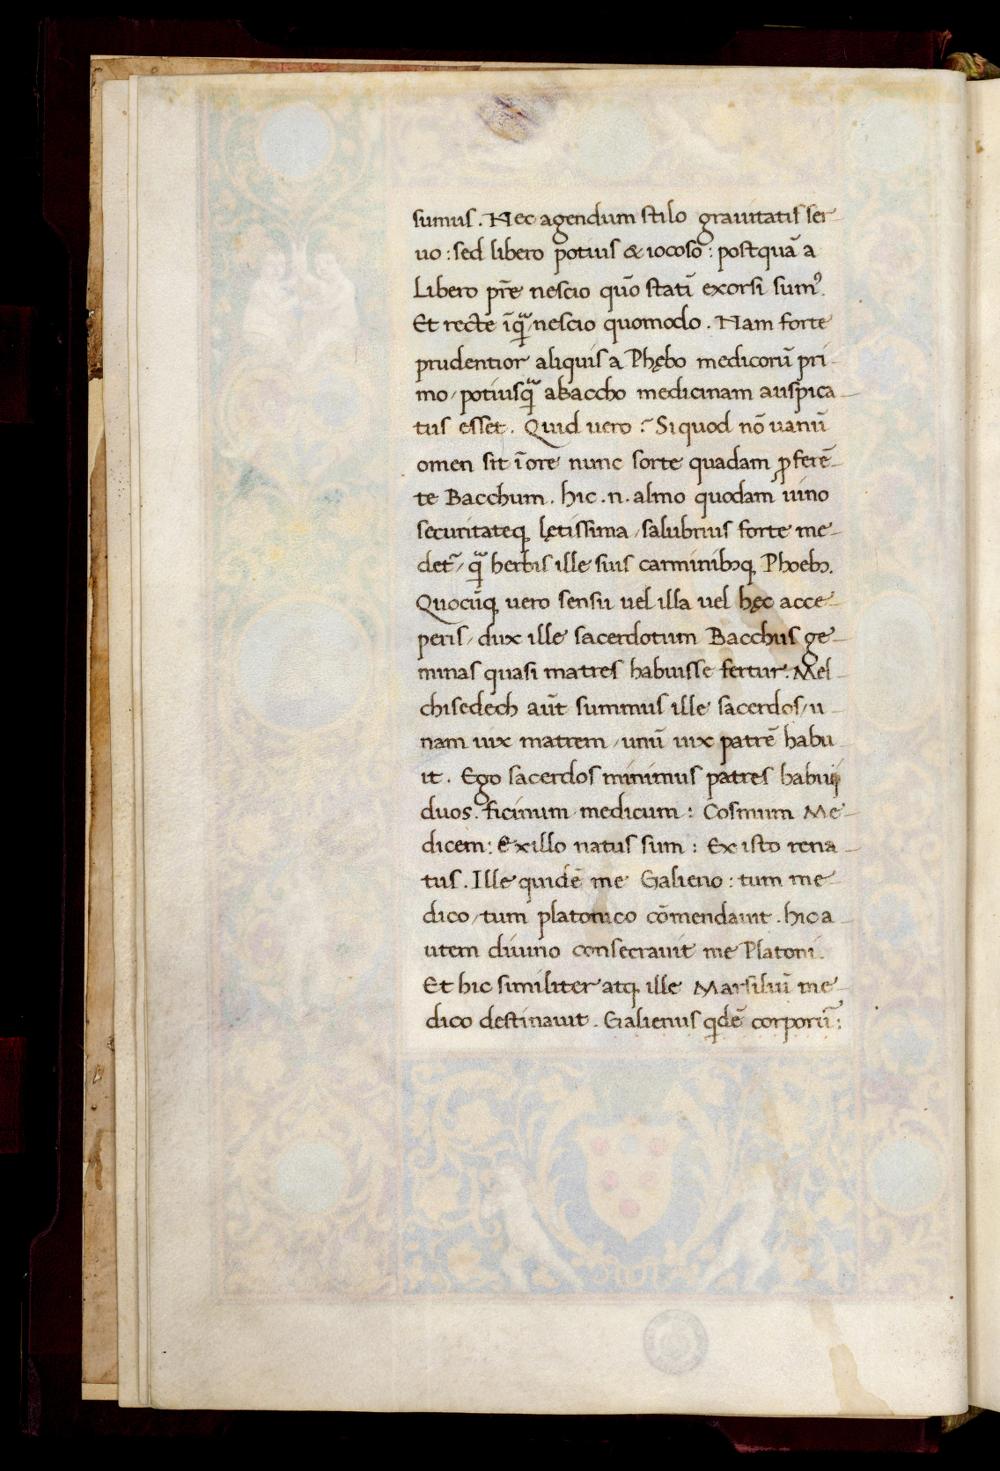 sumus. Nec agendum stilo grauitatis ser-
uo: sed libero potius & iocoso: postquã a
Libero pr̃e nescio quõ statĩ exorsi sumꝰ.
Et recte ĩqͣ̃/nescio quomodo. Nam forte
prudentior aliquis a Phębo medicorũ pri-
mo/potiusqͣ̃ abaccho medicinam auspica-
tus esset. Quid uero? Siquod nõ uanũ
omen sit ĩore nunc sorte quadam ꝓferẽ-
te Bacchum. hic.n.almo quodam uino
securitateqꝫ lętissima/salubrius forte me-
det᷑/qͣ̃ herbis ille suis carminibꝫqꝫ Phoebꝫ.
Quocũqꝫ uero sensu uel illa uel hęc acce-
peris/dux ille sacerdotum Bacchus ge-
minas quasi matres habuisse fertur. Mel-
chisedech aũt summus ille sacerdos/u
nam uix matrem/unũ uix patrẽ habu
it. Ego sacerdos minimus patres habui
duos. ficinum medicum: Cosmum Me-
dicem: Exillo natus sum: Ex isto rena-
tus. Ille quidẽ me Galieno: tum me-
dico/tum platonico cõmendauit. hic a-
utem diuino consecrauit me Platoni.
Et hic similiter atqꝫ ille Marsiliũ me-
dico destinauit. Galienus qdẽ corporũ: